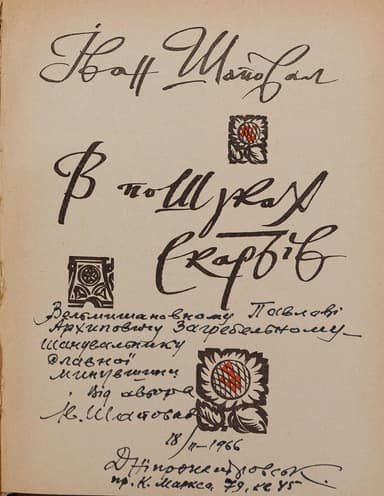 Іван Шаповал
В пошуках
скарбів
Вельмишановному Павлові
Архиповичу Загребельному –
шанувальнику
славної
минувшини
від автора
Ів. Шаповал
18/II–1966
Дніпропетровськ.
пр. К. Маркса 79, кв 45